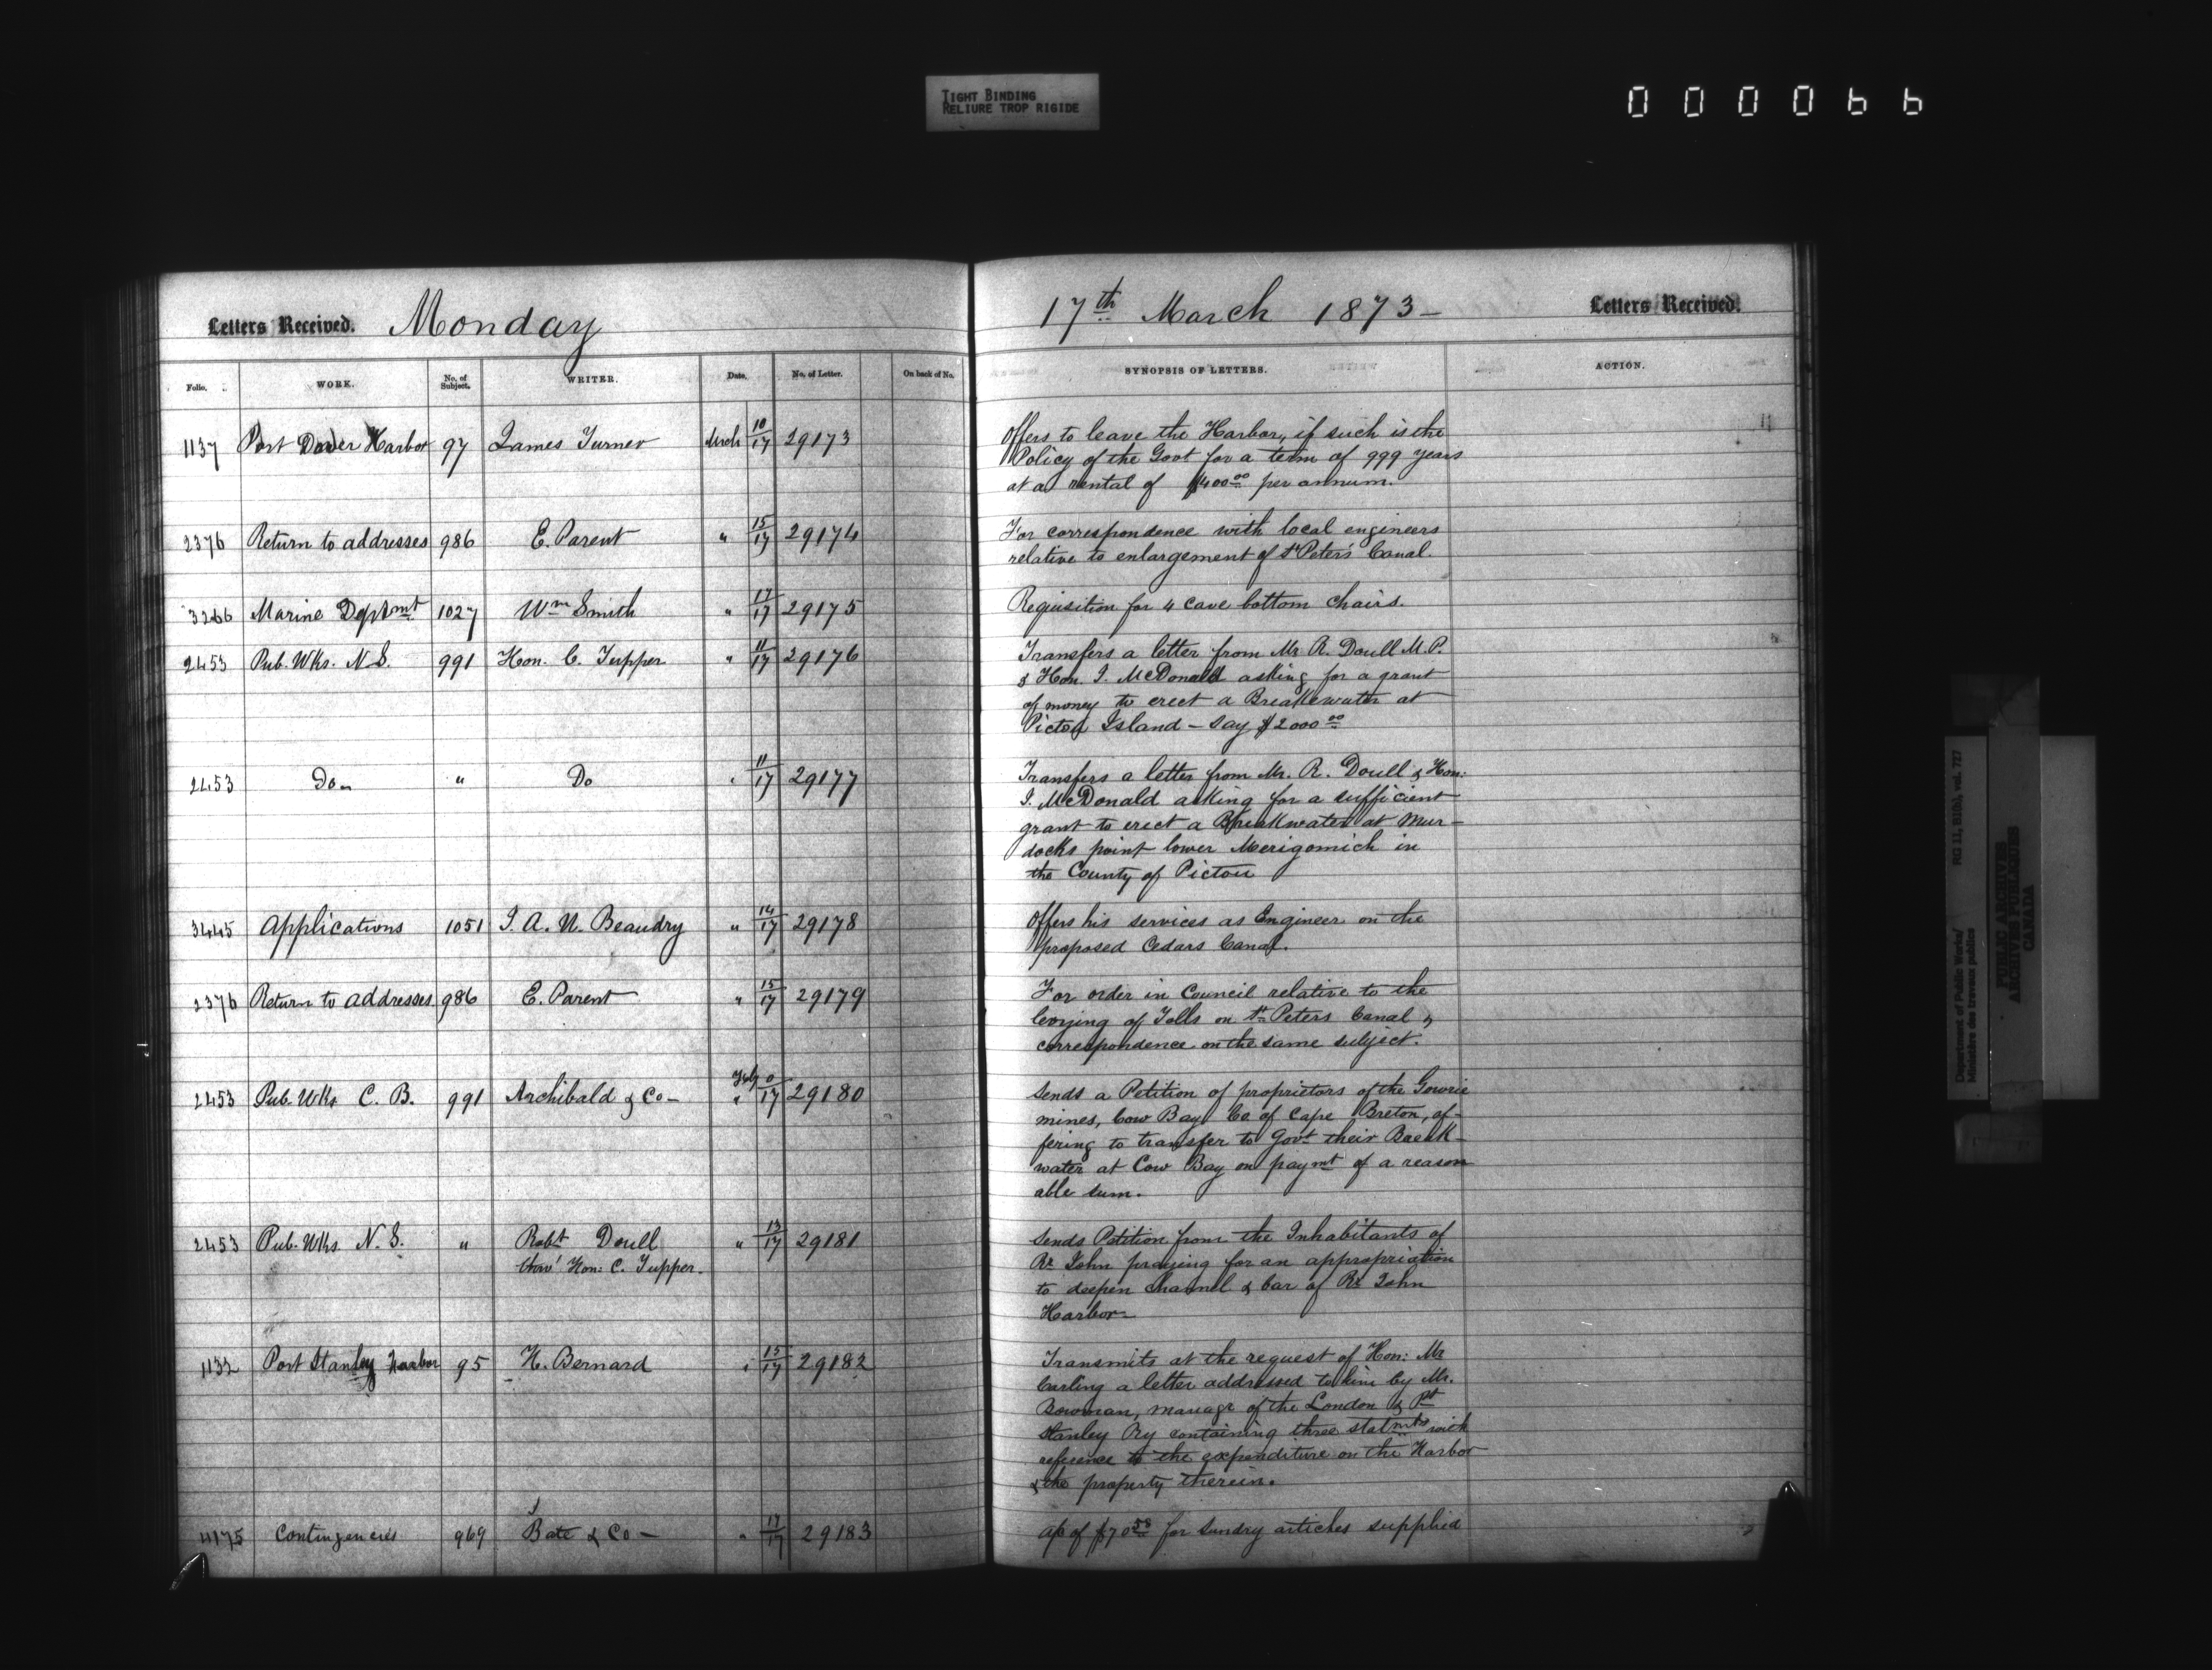 TIGHT BINDING
RELIURE TROP RIGIDE
000066
Letters Received. Monday
17th March 1873 – Letters Received.
Folio. WORK. No. of Subject. WRITER. Date. No. of Letter. On back of No. SYNOPSIS OF LETTERS. ACTION.
1137 Port Dover Harbor 97 James Turner Mrch 10/17 29173 Offers to leave the Harbor, if such is the
Policy of the Govt for a term of 999 years
at a rental of $400.00 per annum.
2376 Return to addresses 986 E. Parent " 15/17 29174 For correspondence with local engineers
relative to enlargement of St Peters Canal.
3266 Marine Deptmt 1027 Wm Smith " 17/17 29175 Requisition for 4 cave bottom chairs.
2453 Pub. Wks. N.S. 991 Hon. C. Tupper " 11/17 29176 Transfers a letter from Mr R. Doull M.P.
& Hon. J. McDonald asking for a grant
of money to erect a Breakewater at
Pictou Island – say $2000.00
2453 Do " Do " 11/17 29177 Transfers a letter from Mr. R. Doull & Hon:
J. McDonald asking for a sufficient
grant to erect a Breakwater at Mur–
docks point lower Merigomich in
the County of Pictou
3445 Applications 1051 J. A. U. Beaudry " 14/17 29178 Offers his services as Engineer on the
proposed Cedars Canal.
2376 Return to addresses 986 E. Parent " 15/17 29179 For order in Council relative to the
levying of Tolls on St Peters Canal &
correspondence on the same subject.
2453 Pub. Wks C. B. 991 Archibald & Co – Feby " 0/17 29180 Sends a Petition of proprietors of the Gowrie
mines, Cow Bay Co. of Cape Breton, of–
fering to transfer to Govt their Baeak–
water at Cow Bay on paymt of a reason
able sum.
2453 Pub. Wks. N.S. " Robt Doull " 13/17 29181 Sends Petition from the Inhabitants of
thro' Hon: C. Tupper.
Rr John praying for an appropriation
to deepen channel & bar of Rr John
Harbor –
1132 Port Stanley Harbor 95 H. Bernard " 15/17 29182 Transmits at the request of Hon: Mr
Carling a letter addressed to him by Mr.
Bowman, managr of the London & Pt
Stanley Ry containing three statmts with
reference to the expenditure on the Harbor
& the property therein.
4175 Contingencies 969 Bate & Co – " 17/17 29183 a/c of $70.58 for Sundry articles supplied
Department of Public Works/ RG 11, B1(b), vol. 727
Ministère des travaux publics
PUBLIC ARCHIVES
ARCHIVES PUBLIQUES
CANADA